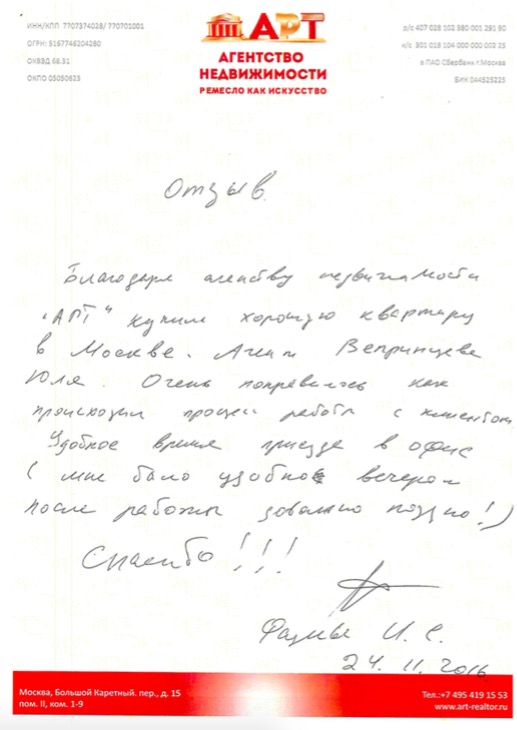 ИНН/КПП 7707374028/ 770701001
ОГРН: 5167746204280
ОКВЭД 68.31
ОКПО 05050623
АРТ
АГЕНТСТВО
НЕДВИЖИМОСТИ
РЕМЕСЛО КАК ИСКУССТВО
р/с 407 028 102 380 001 291 90
к/с 301 018 104 000 000 002 25
в ПАО Сбербанк г.Москва
БИК 044525225
Отзыв.
Благодаря агенству недвижимости
"АРТ" купили хорошую квартиру
в Москве. Агент Вепринцева
Юля. Очень понравилось как
происходил процесс работы с клиентом
Удобное время приезда в офис
(мне было удобно вечером
после работы довольно поздно!)
Спасибо!!!
И. С.
24. 11. 2016
Москва, Большой Каретный. пер., д. 15
пом. II, ком. 1-9
Тел.:+7 495 419 15 53
www.art-realtor.ru